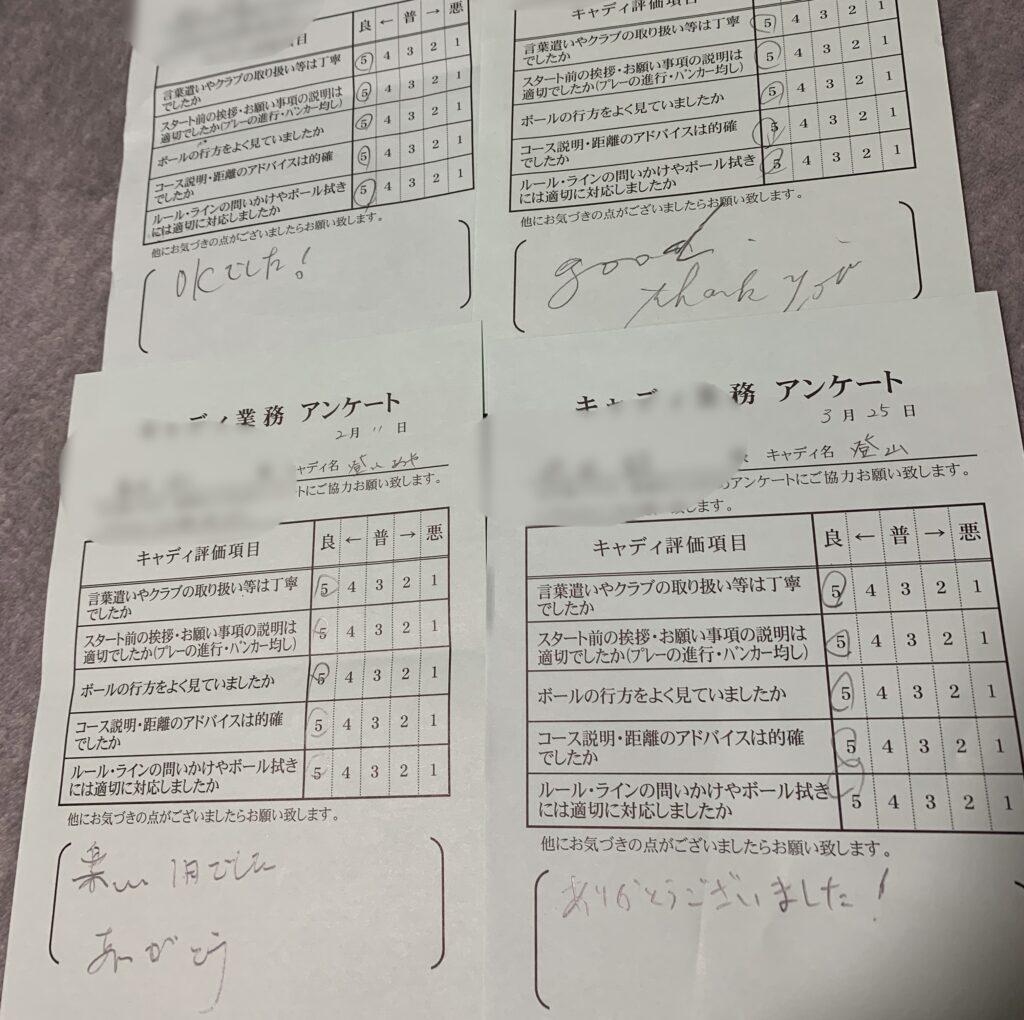 良 ← 普 → 悪
言葉遣いやクラブの取り扱い等は丁寧
でしたか
5 4 3 2 1
スタート前の挨拶・お願い事項の説明は
適切でしたか(プレーの進行・バンカー均し)
5 4 3 2 1
ボールの行方をよく見ていましたか
5 4 3 2 1
コース説明・距離のアドバイスは的確
でしたか
5 4 3 2 1
ルール・ラインの問いかけやボール拭き
には適切に対応しましたか
5 4 3 2 1
他にお気づきの点がございましたらお願い致します。
OKでした!
キャディ評価項目
言葉遣いやクラブの取り扱い等は丁寧
でしたか
5 4 3 2 1
スタート前の挨拶・お願い事項の説明は
適切でしたか(プレーの進行・バンカー均し)
5 4 3 2 1
ボールの行方をよく見ていましたか
5 4 3 2 1
コース説明・距離のアドバイスは的確
でしたか
5 4 3 2 1
ルール・ラインの問いかけやボール拭き
には適切に対応しましたか
5 4 3 2 1
他にお気づきの点がございましたらお願い致します。
good.
thank you
ディ業務 アンケート
2月11日
キャディ名 登山
トにご協力お願い致します。
キャディ評価項目 良 ← 普 → 悪
言葉遣いやクラブの取り扱い等は丁寧
でしたか
5 4 3 2 1
スタート前の挨拶・お願い事項の説明は
適切でしたか(プレーの進行・バンカー均し)
5 4 3 2 1
ボールの行方をよく見ていましたか
5 4 3 2 1
コース説明・距離のアドバイスは的確
でしたか
5 4 3 2 1
ルール・ラインの問いかけやボール拭き
には適切に対応しましたか
5 4 3 2 1
他にお気づきの点がございましたらお願い致します。
楽しい1日でした
ありがとう
務 アンケート
3月25日
キャディ名 登山
アンケートにご協力お願い致します。
ます。
キャディ評価項目 良 ← 普 → 悪
言葉遣いやクラブの取り扱い等は丁寧
でしたか
5 4 3 2 1
スタート前の挨拶・お願い事項の説明は
適切でしたか(プレーの進行・バンカー均し)
5 4 3 2 1
ボールの行方をよく見ていましたか
5 4 3 2 1
コース説明・距離のアドバイスは的確
でしたか
5 4 3 2 1
ルール・ラインの問いかけやボール拭き
には適切に対応しましたか
5 4 3 2 1
他にお気づきの点がございましたらお願い致します。
ありがとうございました!